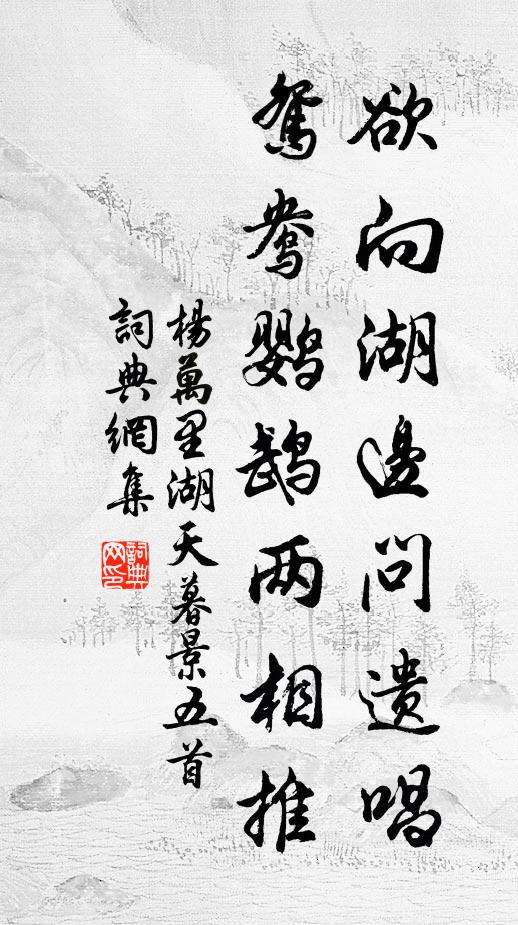 欲向湖邊問遺唱
鴛鴦鸚鵡两相推
楊萬里湖天暮景五首
詞典網集
詞典网印